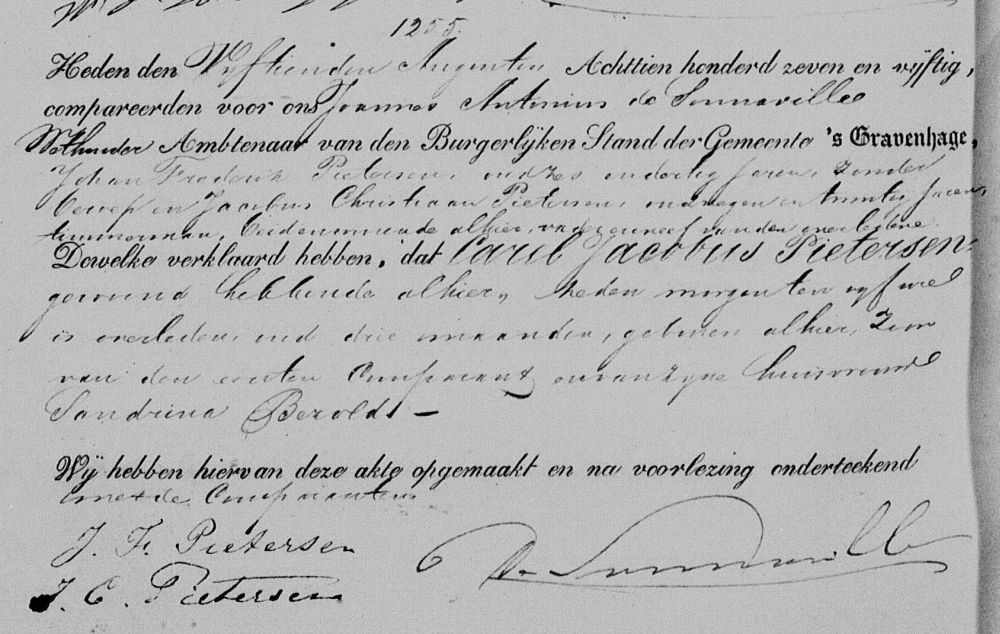 1255.
Heden den Vyftienden Augustus Achttien honderd zeven en vyftig,
compareerden voor ons Joannes Antonius de Sonnaville
Wethouder Ambtenaar van den Burgerlyken Stand der Gemeente 's Gravenhage,
Johan Frederik Pietersen, oud zes en dertig Jaren, zonder
beroep en Jacobus Christiaan Pietersen, oud negen en twintig Jaren,
timmerman, beiden wonende alhier, vader en neef van den overledene.
Dewelke verklaard hebben, dat Carel Jacobus Pietersen
gewoond hebbende alhier, heden morgen ten vyf ure
is overleden, oud drie maanden, geboren alhier, Zoon
van den eersten Comparant en van zyne huisvrouw
Sandrina Bezoldt –
Wÿ hebben hiervan deze akte opgemaakt en na voorlezing onderteekend
met de Comparanten
J. F. Pietersen
de Sonnaville
J. C. Pietersen